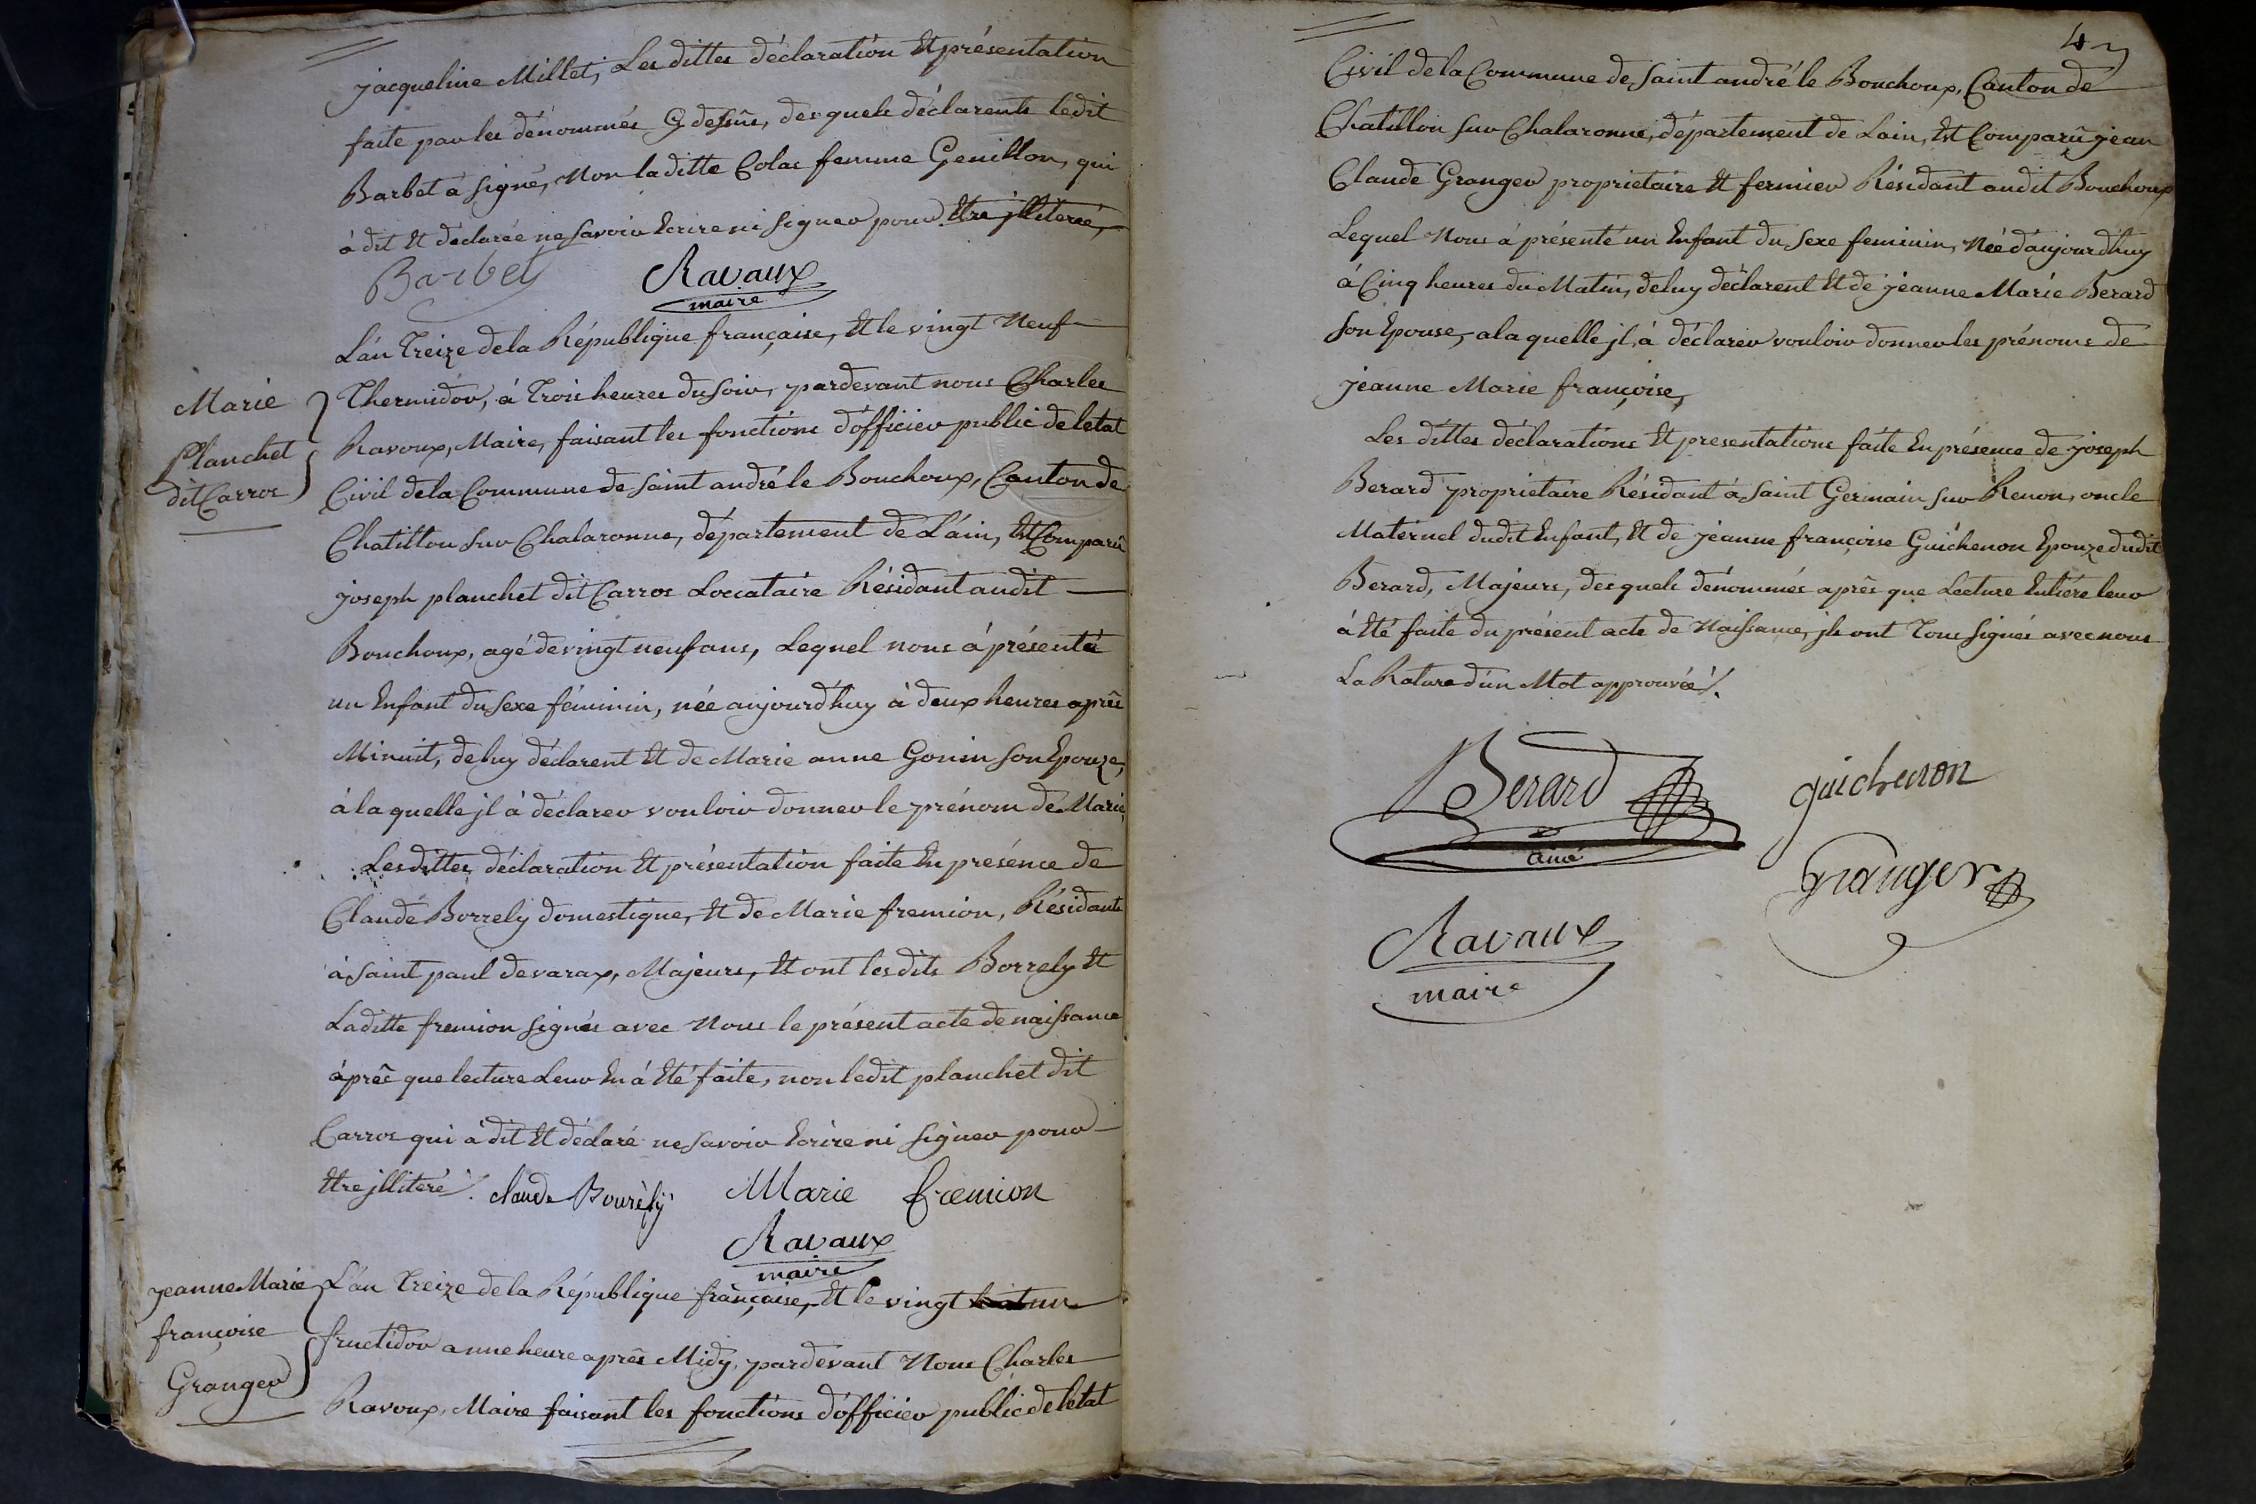 jacqueline Millet, Les dittes déclaration Et présentation
faite par les dénommés Cy dessûs, desquels déclarents ledit
Barbet à signé, Non la ditte Colas femme Genillon, qui
à dit Et déclarée ne savoir Ecrire ni signer pour Etre jlliterée,
Barbet Ravaux
maire
Marie
Planchet
dit Carros
L'án Treize de la République française, Et le vingt Neuf
Thermidor, á Trois heures du soir, pardevant nous Charles
Ravoux, Maire, faisant les fonctions d'officier public de letat
Civil de la Commune de saint andré le Bouchoux, Canton de
Chatillon sur Chalaronne, département de L'áin, Et Comparû
joseph planchet dit Carros Loccataire Résidant audit
Bouchoux, agé de vingt neuf ans, Lequel nous à présenté
un Enfant du sexe féminin, née aujourd'huy à deux heures aprês
Minuit, de luy déclarent Et de Marie anne Gonin son Epouze,
á la quelle jl à déclarer vouloir donner le prénom de Marie,
Les dittes déclaration Et présentation faite En présence de
Claude Borrely domestique, Et de Marie fremion, Résidants
à saint paul de varax, Majeurs, Et ont les dits Borrely Et
Laditte fremion signés avec Nous le présent acte de naissance
àprês que lecture Leur En á Eté faite, non ledit planchet dit
Carros qui à dit Et déclaré ne savoir Ecrire ni signer pour
Etre jlliteré /. claude Bourèly Marie fremion
Ravaux
maire
jeanne Marie
françoise
Granger
L'án Treize de la République française, Et le vingt un
fructidor a une heure aprês Midy, pardevant Nous Charles
Ravoux, Maire faisant les fonctions d'officier public de létat
4
Civil de la Commune de saint andré le Bouchoux, Canton de
Chatillon sur Chalaronne, département de Lain, Et Comparû jean
Claude Granger proprietaire Et fermier Résidant audit Bouchoux
Lequel Nous á présenté un Enfant du sexe feminin, Née d'aujourd'huy
à Cinq heures du Matin, de luy déclarent Et de jeanne Marie Berard
son Epouse, a la quelle jl à déclarer vouloir donner les prénoms de
jeanne Marie françoise,
Les dittes déclarations Et presentations faite En présence de joseph
Berard proprietaire Résidant à saint Germain sur Renon, oncle
Maternel dudit Enfant, Et de jeanne françoise Guichenon Epouze dudit
Berard, Majeurs, desquels dénommés aprês que Lecture Entiére leur
á Eté faite du présent acte de Naissance, jls ont Tous signés avec nous
La Rature d'un Mot approuvée /.
Berard guichenon
ainé
Granger
Ravaux
maire